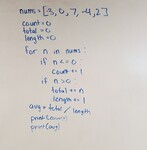 nums = [3, 0, 7, -4, 2]
count = 0
total = 0
length = 0
for n in nums:
if n <= 0:
count += 1
if n > 0:
total += n
length += 1
avg = total / length
print(count)
print(avg)